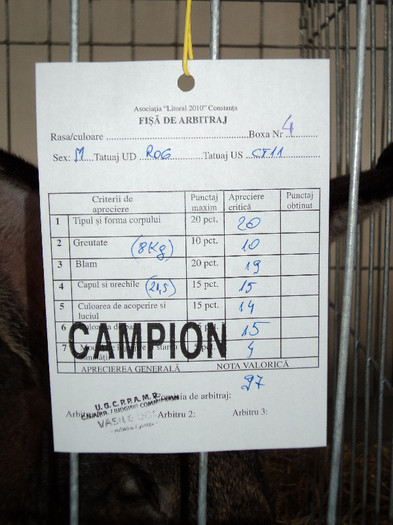 Asociația "Litoral 2010" Constanța
FIȘĂ DE ARBITRAJ
Rasa/culoare ........ Boxa Nr 4
Sex: M Tatuaj UD ROG Tatuaj US CT11
Criterii de apreciere Punctaj maxim Apreciere critică Punctaj obținut
1 Tipul și forma corpului 20 pct. 20
2 Greutate (8Kg) 10 pct. 10
3 Blam 20 pct. 19
4 Capul si urechile (21,5) 15 pct. 15
5 Culoarea de acoperire si luciul 15 pct. 14
6 15
7 4
CAMPION
APRECIEREA GENERALĂ NOTA VALORICĂ
97
de arbitraj:
U.G.C.P.P.A.M.R.
VASILE
Arbitru 2: Arbitru 3: